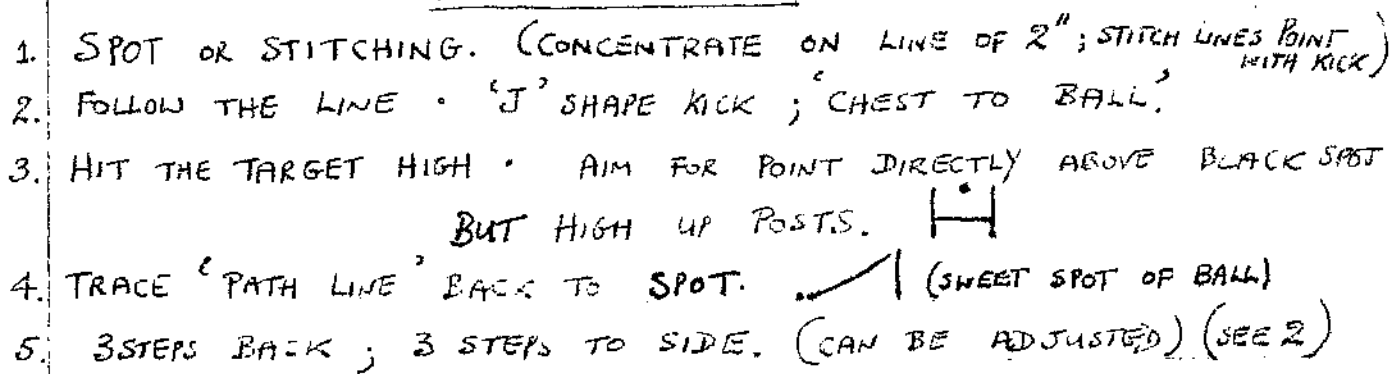 1. SPOT OR STITCHING. (CONCENTRATE ON LINE OF 2"; STITCH LINES POINT
WITH KICK)
2. FOLLOW THE LINE . 'J' SHAPE KICK ; 'CHEST TO BALL.'
3. HIT THE TARGET HIGH . AIM FOR POINT DIRECTLY ABOVE BLACK SPOT
BUT HIGH UP POSTS.
4. TRACE 'PATH LINE' BACK TO SPOT. (SWEET SPOT OF BALL)
5. 3 STEPS BACK ; 3 STEPS TO SIDE. (CAN BE ADJUSTED) (SEE 2)